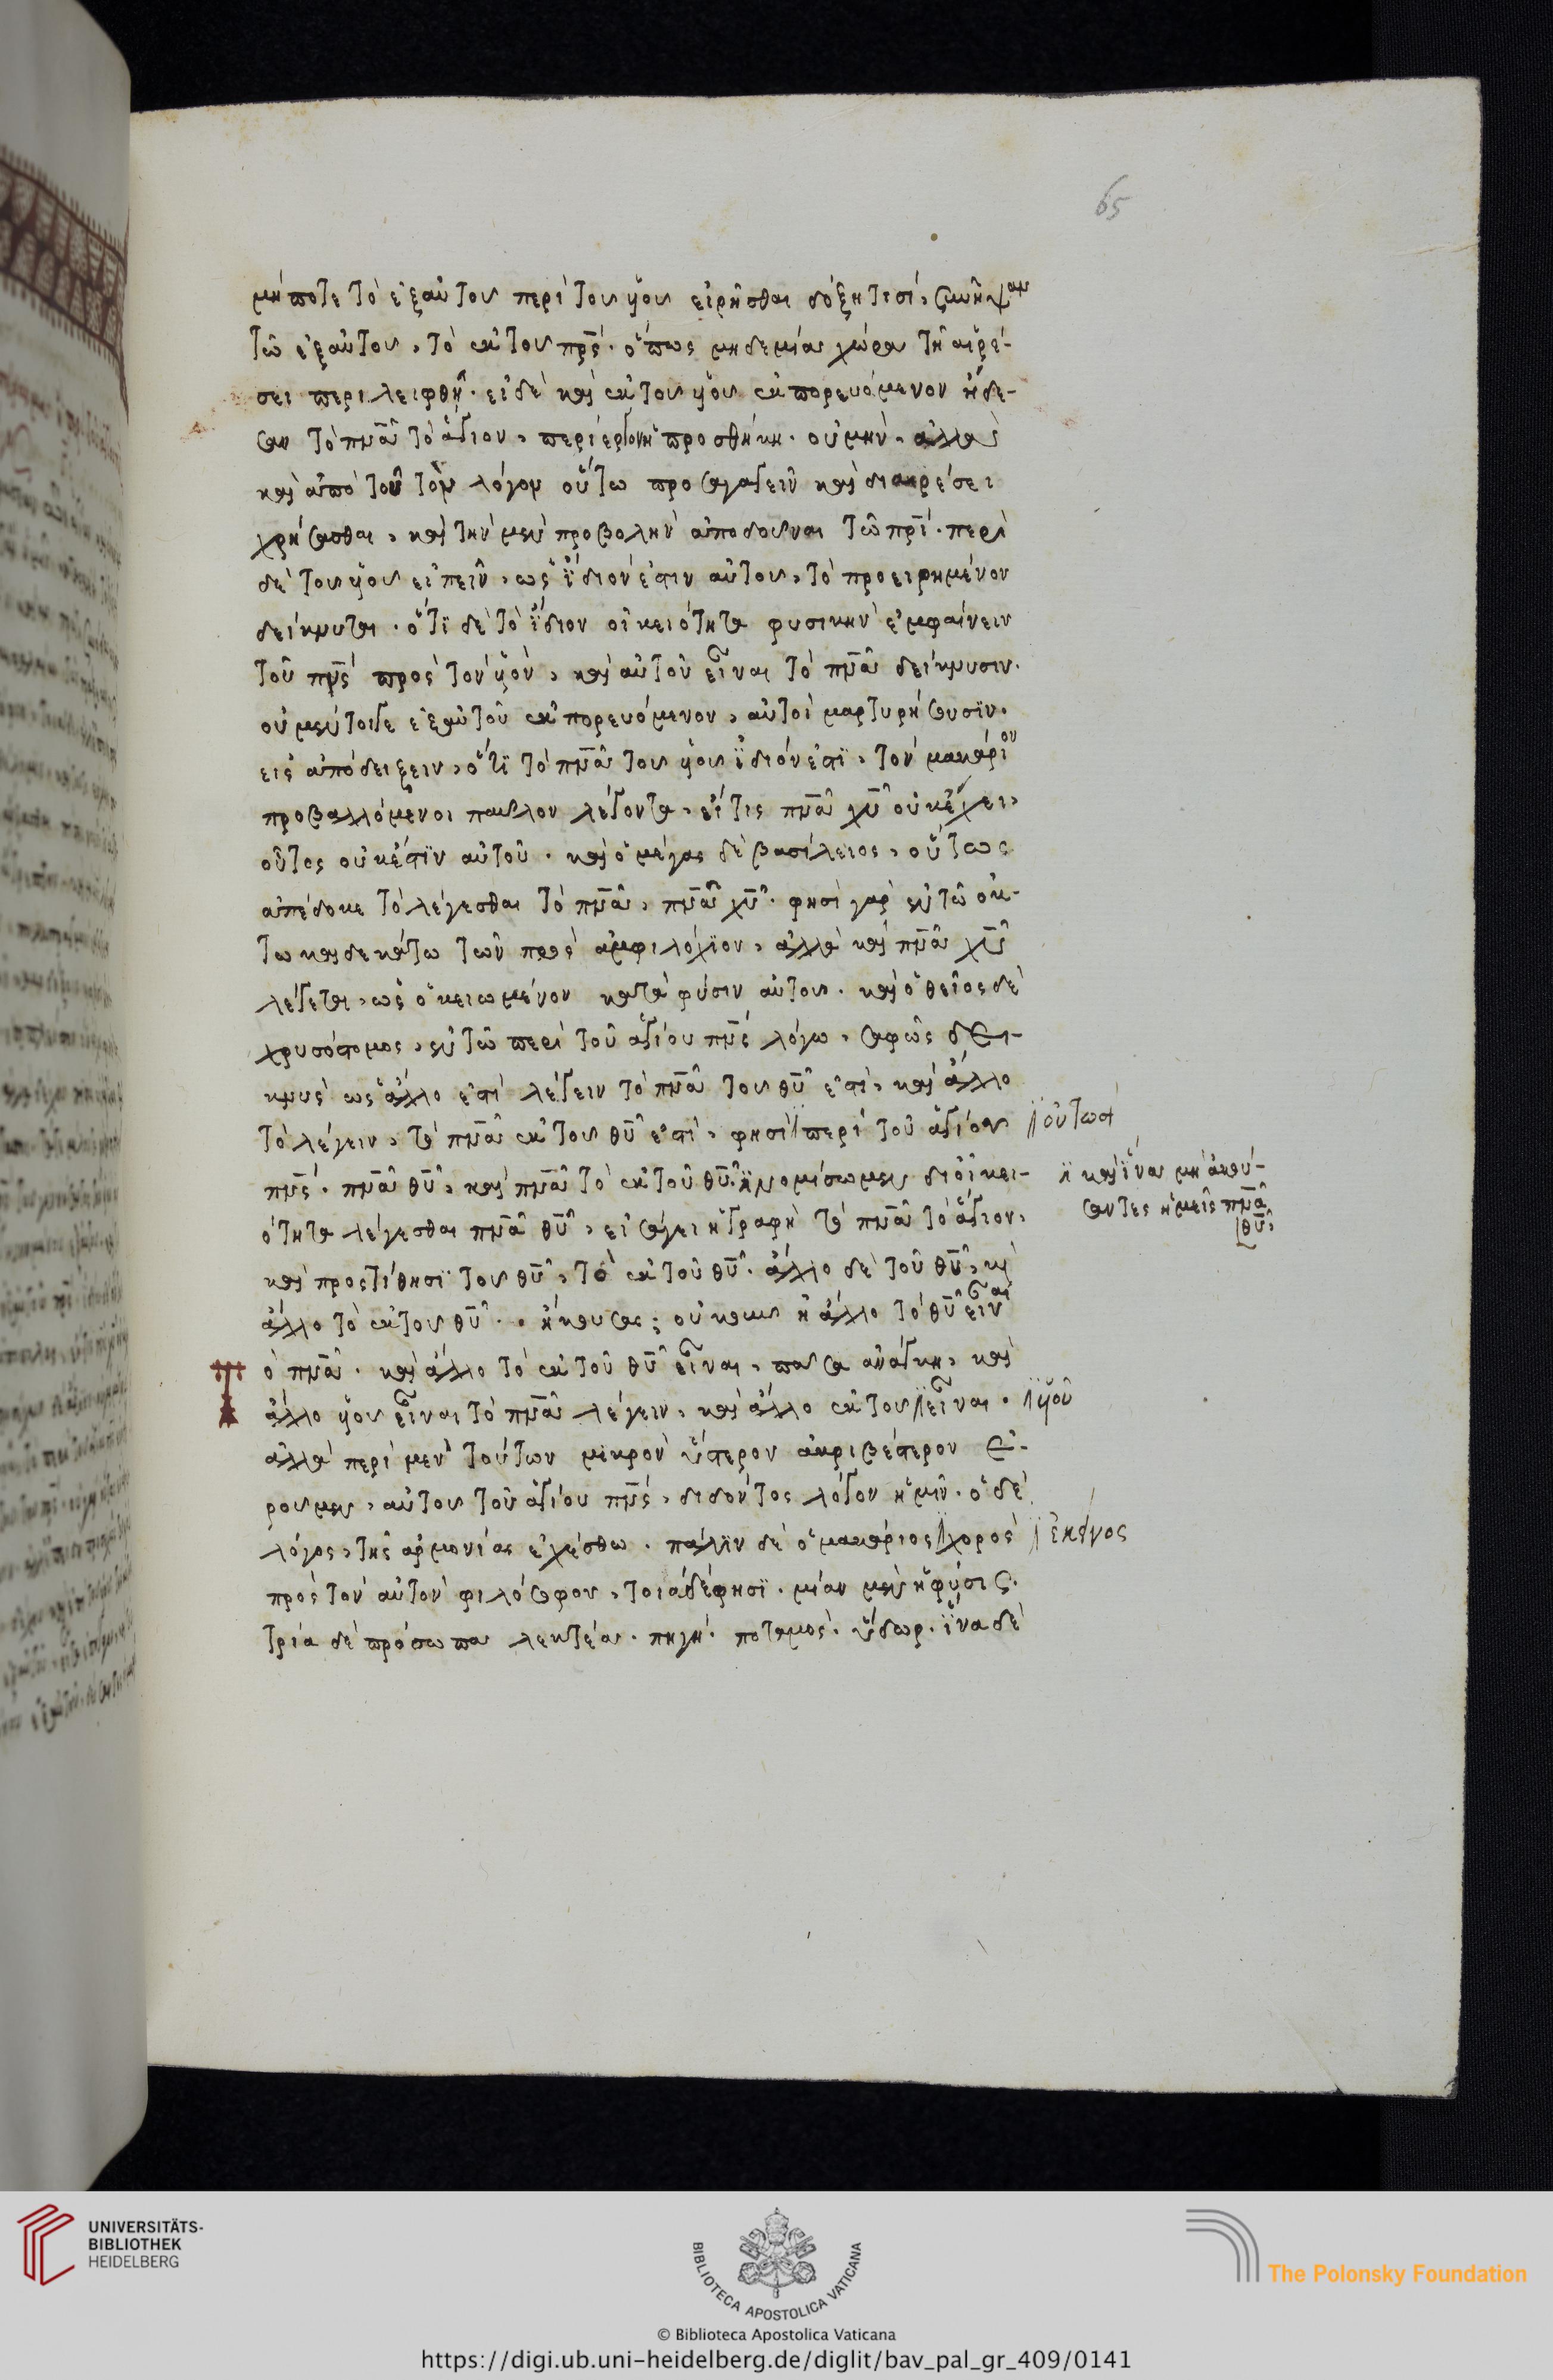 65
μήποτε τὸ ἐξ αὐτοῦ περὶ τοῦ υἱοῦ εἰρῆσθαι δόξη τισί, συνῆψαν
τῶ ἐξ αὐτοῦ, τὸ ἐκ τοῦ πρς. ὅπως μηδεμία χώρα τῆ αἱρέ-
σει περιλειφθῆ. εἰ δὲ καὶ ἐκ τοῦ υἱοῦ ἐκπορευόμενον ἤδε-
σαν τὸ πνα τὸ ἅγιον, περίεργον ἡ προσθήκη. οὐ μὴν, ἀλλὰ
καὶ ἀπὸ τοῦ τὸν λόγον οὕτω προσαγαγεῖν καὶ διαιρέσει
χρήσασθαι, καὶ τὴν μὲν προβολὴν ἀποδοῦναι τῶ πρι. περὶ
δὲ τοῦ υἱοῦ εἰπεῖν, ὡς ἴδιόν ἐστιν αὐτοῦ, τὸ προειρημένον
δείκνυται. ὅτι δὲ τὸ ἴδιον οἰκειότητα φυσικὴν ἐμφαίνειν
τοῦ πνς πρὸς τὸν υἱὸν, καὶ αὐτοῦ εἶναι τὸ πνα δείκνυσιν.
οὐ μέντοιγε ἐξ αὐτοῦ ἐκπορευόμενον, αὐτοὶ μαρτυρήσουσιν.
εἰς ἀπόδειξειν, ὅτι τὸ πνα τοῦ υἱοῦ ἴδιόν ἐστι, τὸν μακάριον
προβαλλόμενοι παῦλον λέγοντα, εἴ τις πνα χυ οὐκ ἔχει,
οὗτος οὐκ ἔστιν αὐτοῦ. καὶ ὁ μέγας δὲ βασίλειος, οὕτως
ἀπέδοκε τὸ λέγεσθαι τὸ πνα, πνα χυ. φησὶ γὰρ ἐν τῶ ὀκ-
τωκαιδεκάτω τῶν πρὸς ἀμφιλόχιον, ἀλλὰ καὶ πνα χυ
λέγεται, ὡς ὀκειωμένον κατὰ φύσιν αὐτοῦ. καὶ ὁ θεῖος δὲ
χρυσόστομος, ἐν τῶ περὶ τοῦ ἁγίου πνς λόγω, σαφῶς δει-
κνὺς ὡς ἄλλο ἐστὶ λέγειν τὸ πνα τοῦ θυ ἐστὶ, καὶ ἄλλο
τὸ λέγειν, τὸ πνα ἐκ τοῦ θυ ἐστὶ, φησὶ περὶ τοῦ ἁγίου οὑτωσὶ
πνς. πνα θυ, καὶ πνα τὸ ἐκ τοῦ θυ. νομίσωμεν δι οἰκει-
ότητα λέγεσθαι πνα θυ, εἰσάγει ἡ γραφὴ τὸ πνα τὸ ἅγιον,
καὶ ἵνα μὴ ἀκού-
σαντες ἡμεῖς πνα
θυ,
καὶ προστίθησι τοῦ θυ, τὸ ἐκ τοῦ θυ. ἄλλο δὲ τοῦ θυ, καὶ
ἄλλο τὸ ἐκ τοῦ θυ. ἤκουσας; οὐκοῦν ἢ ἄλλο τὸ θυ εἶναι
ὁ πνα. καὶ ἄλλο τὸ ἐκ τοῦ θυ εἶναι, πᾶσα ἀνάγκη, καὶ
ἄλλο υἱοῦ εἶναι τὸ πνα λέγειν, καὶ ἄλλο ἐκ τοῦ εἶναι. υἱοῦ
ἀλλὰ περὶ μὲν τούτων μικρὸν ὕστερον ἀκριβέστερον εἰ-
ροῦμεν, αὐτοῦ τοῦ ἁγίου πνς, διδόντος λόγον ἡμῖν. ὁ δὲ
λόγος, τῆς ἁρμονίας ἐχέσθω. πάλιν δὲ ὁ μακάριος χορὸς ἐκεῖνος
πρὸς τὸν αὐτὸν φιλόσοφον, τοιάδε φησι. μία μὲν ἡ φύσις.
τρία δὲ πρόσωπα λεκτέα. πηγὴ. ποταμὸς. ὕδωρ. ἵνα δὲ
UNIVERSITÄTS-
BIBLIOTHEK
HEIDELBERG
BIBLIOTECA APOSTOLICA VATICANA
The Polonsky Foundation
© Biblioteca Apostolica Vaticana
https://digi.ub.uni-heidelberg.de/diglit/bav_pal_gr_409/0141